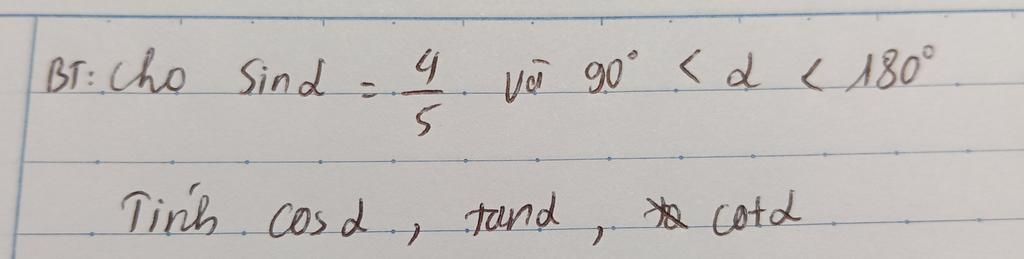 BT: Cho Sinα = 4/5 với 90° < α < 180°
Tính cosα, tanα, cotα